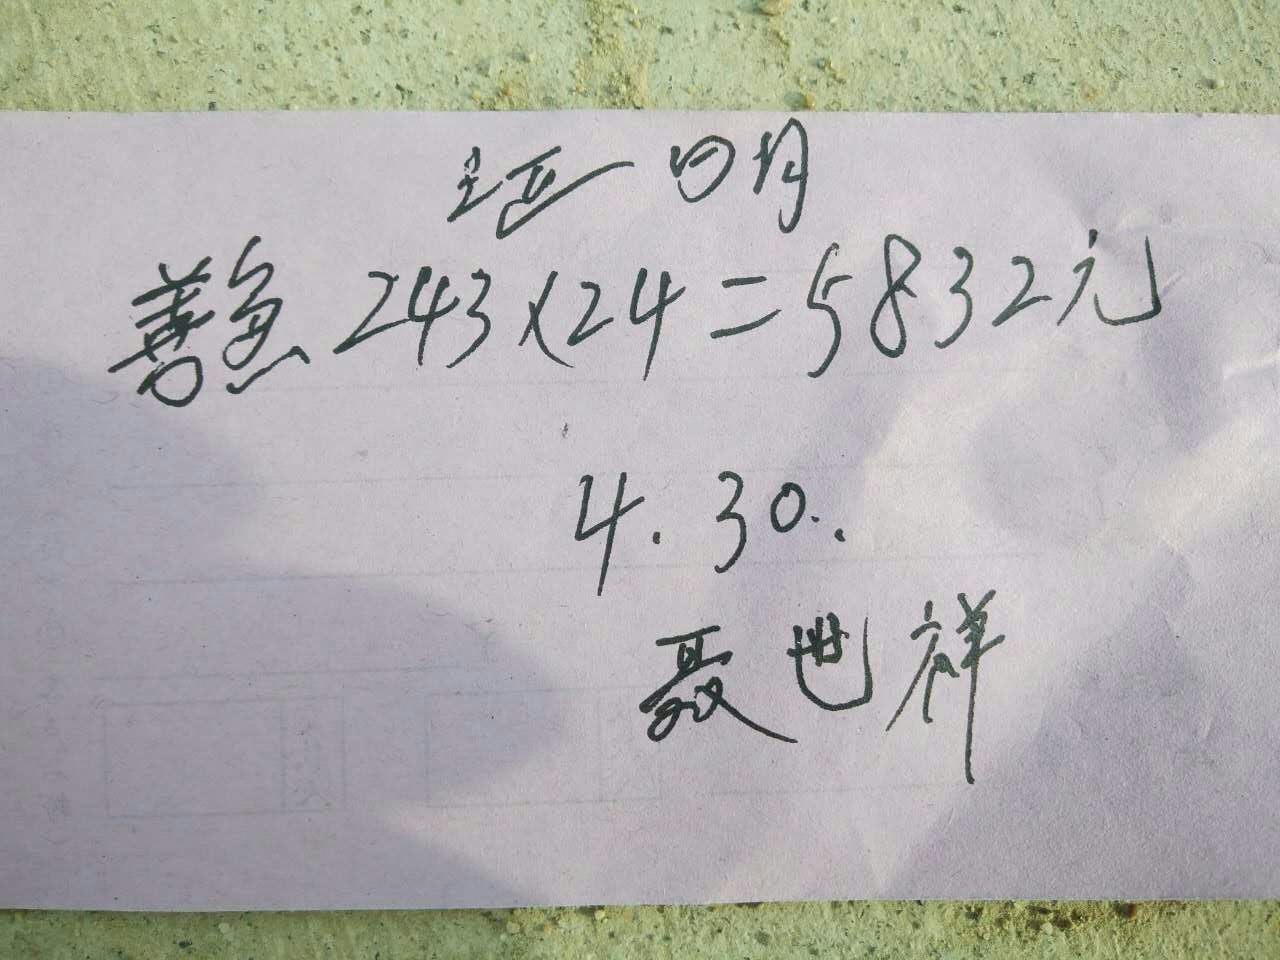 善鱼243×24=5832元
4.30.
聂世祥